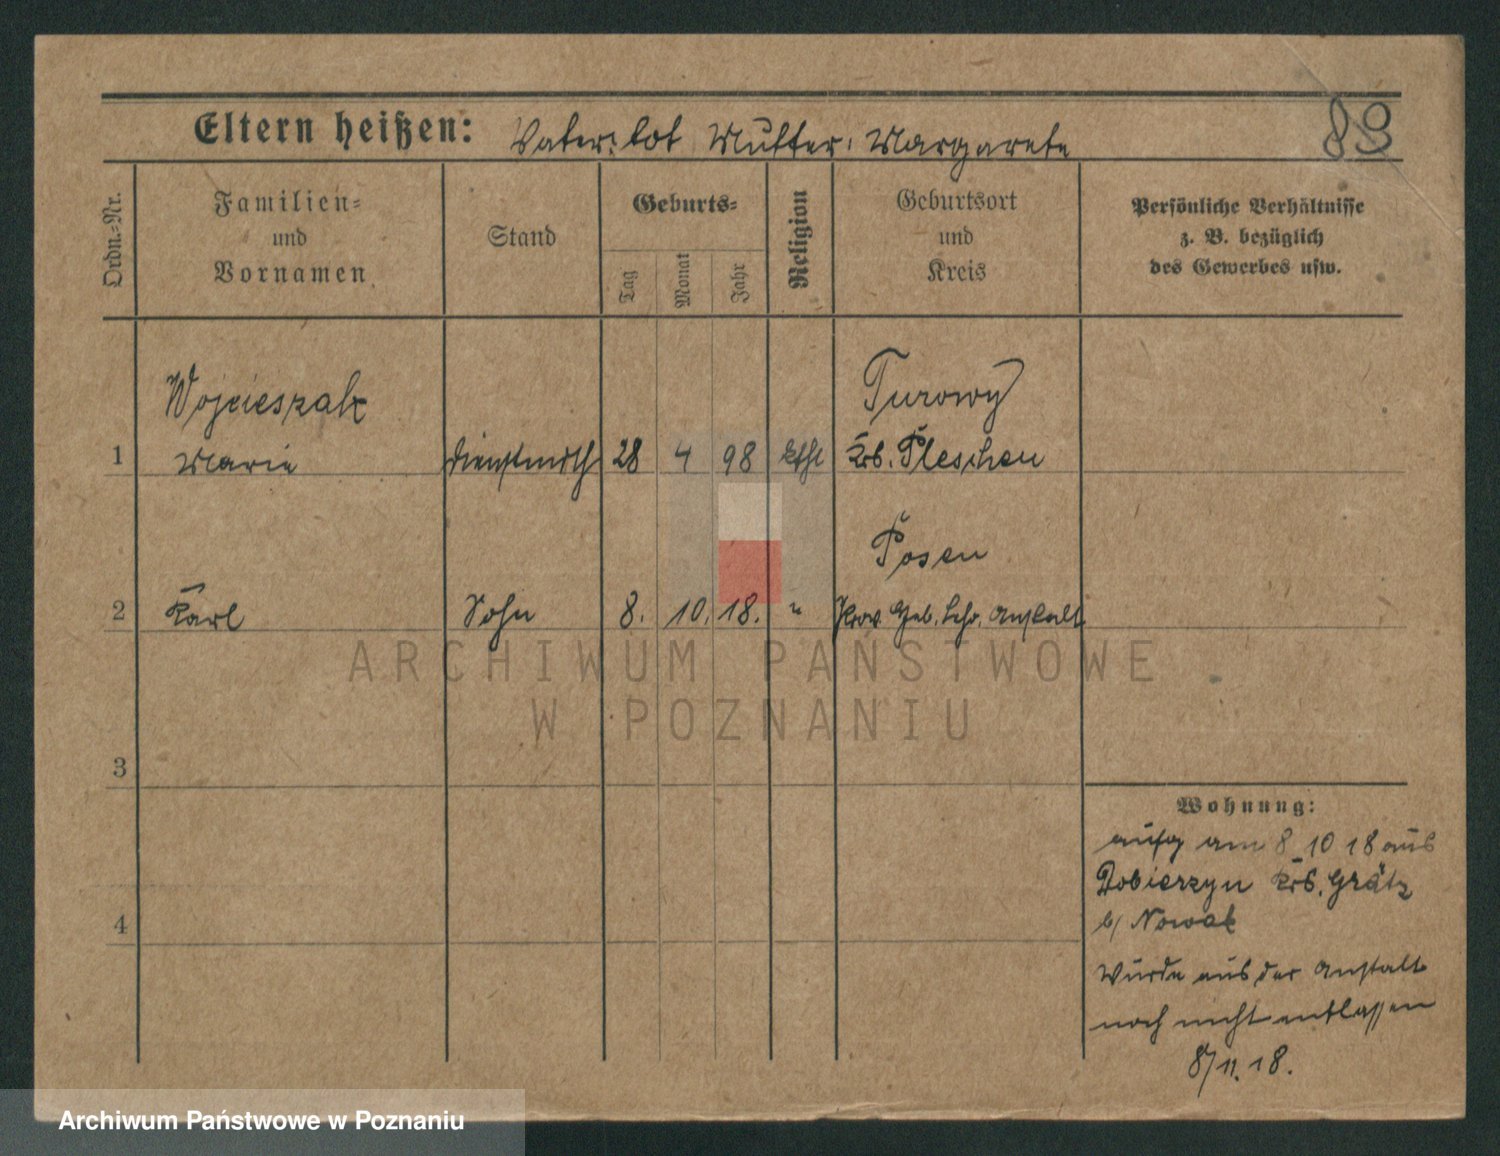 Eltern heißen: Vater: tot Mutter: Margarete 89
Ordn.-Nr.
Familien-
und
Vornamen
Stand
Geburts-
Tag
Monat
Jahr
Religion
Geburtsort
und
Kreis
Persönliche Verhältnisse
z. B. bezüglich
des Gewerbes usw.
Wojcieszak Turowy
1 Marie Dienstmdch 28 4 98 kthl Krs. Pleschen
Posen
2 Karl Sohn 8. 10. 18. " Prov. Heb. Lehr. Anstalt
ARCHIWUM PAŃSTWOWE
W POZNANIU
3
4
Wohnung:
aufg am 8 10 18 aus
Dobierzyn Krs. Grätz
b/ Nowak
Wurde aus der Anstalt
noch nicht entlassen
8/11.18.
Archiwum Państwowe w Poznaniu